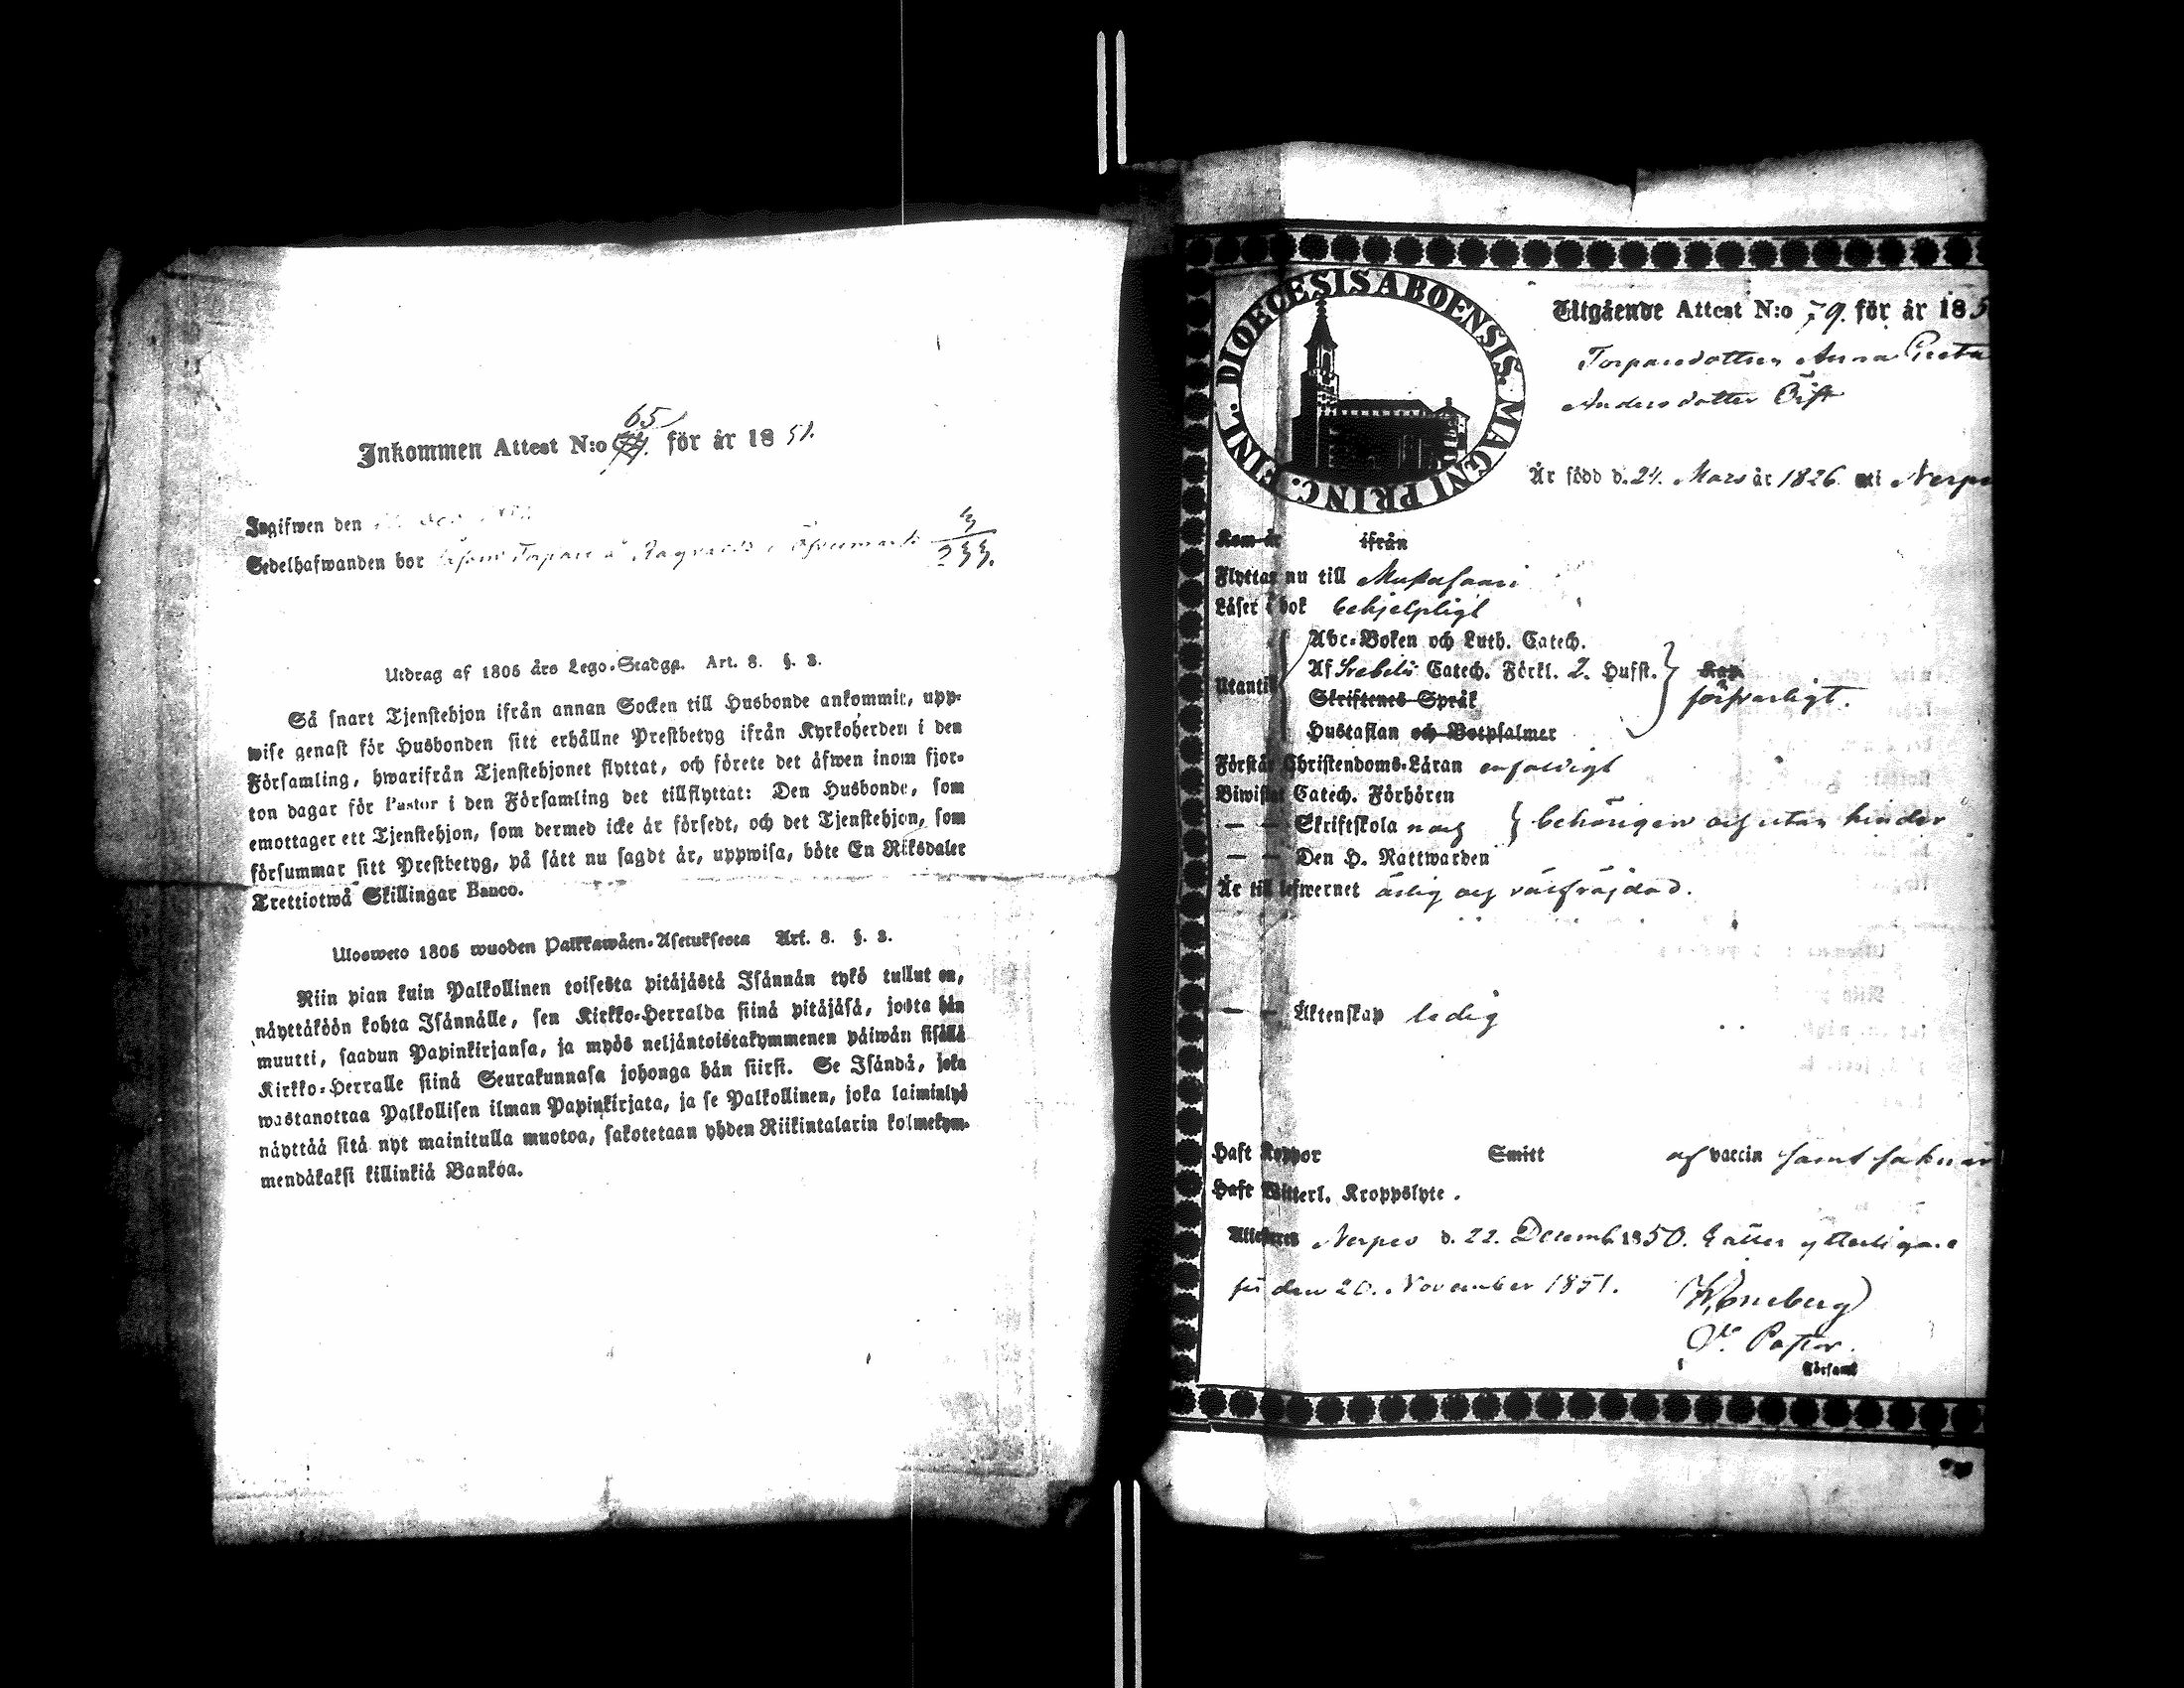 65
Inkommen Attest N:o för år 18 51.
Ingifwen den
Sedelhafwanden bor såsom Torpare å Ragnvalds i Öfvermark 3/233.
Utdrag af 1805 års Lego-Stadga. Art. 8. §. 3.
Så snart Tjenstehjon ifrån annan Socken till Husbonde ankommit, upp-
wise genast för Husbonden sitt erhållne Prestbetyg ifrån Kyrkoherden i den
Församling, hwarifrån Tjenstehjonet flyttat, och förete det äfwen inom fjor-
ton dagar för Pastor i den Församling det tillflyttat: Den Husbonde, som
emottager ett Tjenstehjon, som dermed icke är försedt, och det Tjenstehjon, som
försummar sitt Prestbetyg, på sätt nu sagdt är, uppwisa, böte En Riksdaler
Trettiotwå Skillingar Banco.
Ulosweto 1805 wuoden Palkkawäen-Asetuksesta Art. 8. §. 3.
Niin pian kuin Palkollinen toisesta pitäjästä Isännän tykö tullut on,
näyttäköön kohta Isännälle, sen Kirkko-Herralda siinä pitäjäsä, josta hän
muutti, saadun Papinkirjansa, ja myös neljäntoistakymmenen päiwän sisällä
Kirkko-Herralle siinä Seurakunnasa johonga hän siirsi. Se Isändä, joka
wastanottaa Palkollisen ilman Papinkirjata, ja se Palkollinen, joka laiminlyö
näyttää sitä nyt mainitulla muotoa, sakotetaan yhden Riikintalarin kolmekym-
mendäkaksi killinkiä Bankoa.
DIOECESIS ABOENSIS. MAGNI PRINC. FINL.
Utgående Attest N:o 79. för år 185
Torparedottren Anna Greta
Andersdotter Öist
Är född d. 24. Mars år 1826 uti Nerpes
Kom år ifrån
Flyttar nu till
Läser i bok behjelpligt
Abc-Boken och Luth. Catech.
Utantill Af Svebelii Catech. Förkl. 2. Hufst.
Skriftenes Språk försvarligt.
Hustaflan och Botpsalmer
Förstår Christendoms-Läran enfaldigt
Biwistat Catech. Förhören
— — Skriftskola och behörigen och utan hinder
— — Den H. Nattwarden
Är till lefwernet ärlig och välfräjdad.
— — Äktenskap ledig
Haft Koppor Smitt af vaccin samt saknar
Haft Witterl. Kroppslyte.
Attesteras Nerpes d. 22. Decemb. 1850. Gäller ytterligare
för den 20. November 1851.
V. Pastor.
Församl